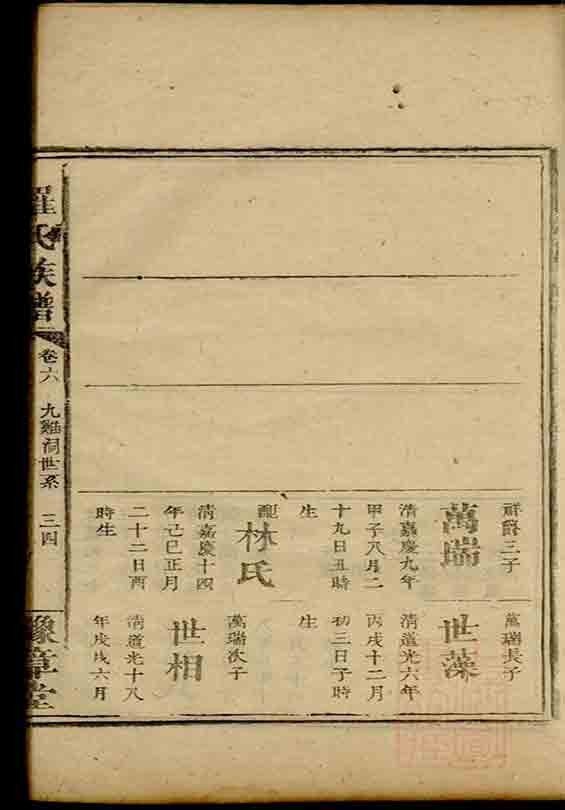 祥爵三子
萬瑞
清嘉慶九年
甲子八月二
十九日丑時
生
配
林氏
清嘉慶十四
年己巳正月
二十二日酉
時生
萬瑞長子
世藻
清道光六年
丙戌十二月
初三日子時
生
萬瑞次子
世相
清道光十八
年戊戌六月
羅氏族譜
卷六 九雞洞世系 三四
豫章堂